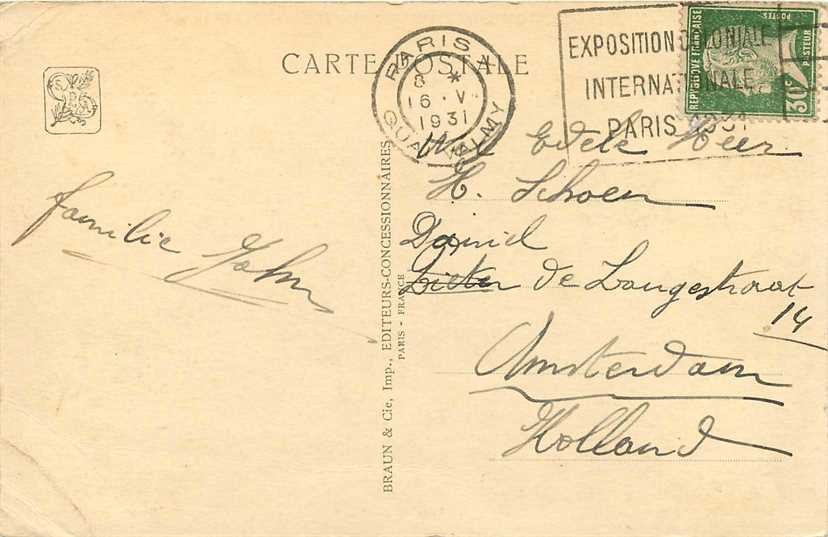 CARTE POSTALE
PARIS
8 *
16 · V
1931
QUAI VALMY
EXPOSITION COLONIALE
INTERNATIONALE
PARIS 1931
REPUBLIQUE FRANÇAISE
POSTES
PASTEUR
30c
Wel Edele Heer
H. Schoen
Daniel
de Langestraat
14
Amsterdam
Holland
familie John
BRAUN & Cie, Imp., EDITEURS-CONCESSIONNAIRES
PARIS - FRANCE